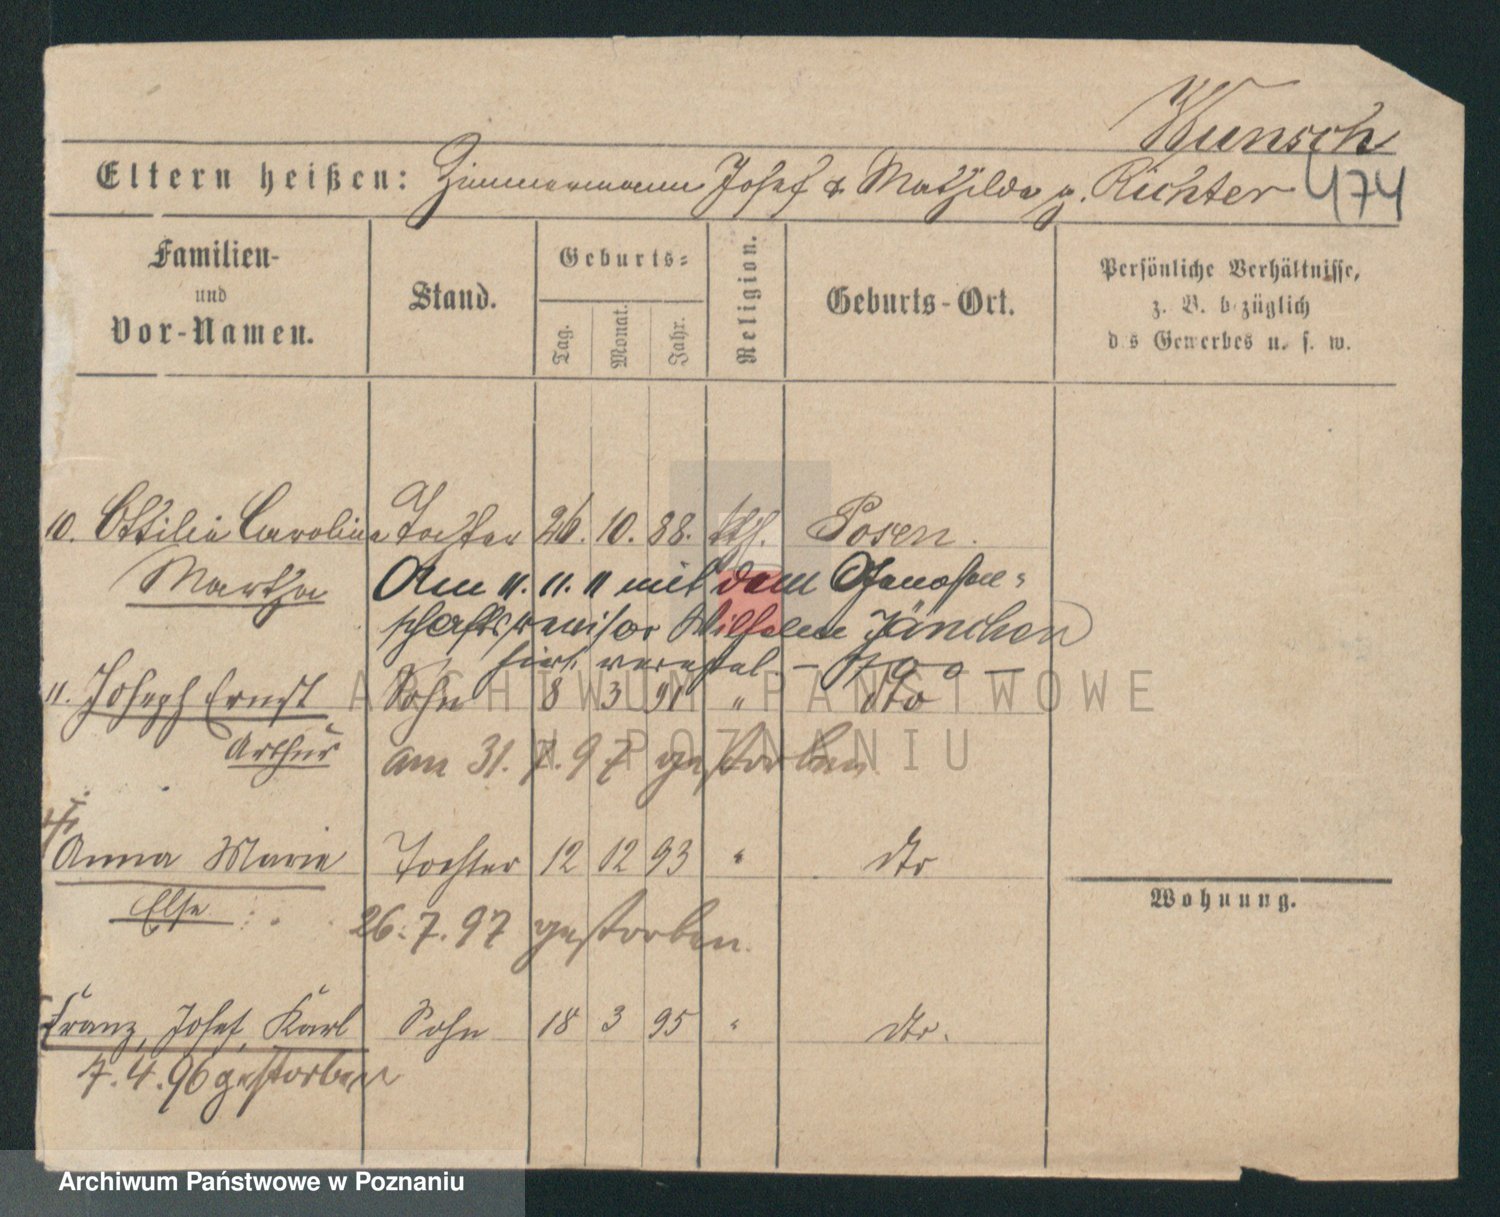 Wunsch
Eltern heißen: Zimmermann Josef & Mathilde g. Richter 474
Familien-
und
Vor-Namen.
Stand.
Geburts-
Tag.
Monat.
Jahr.
Religion.
Geburts-Ort.
Persönliche Verhältnisse,
z. B. bezüglich
des Gewerbes u. s. w.
10. Ottilie Caroline Tochter 26. 10. 88. kth. Posen.
Martha
Am 11. 11. 11 mit dem Genossen-
schaftsrevisor Wilhelm Jänchen
hier verehel. — 700 —
11. Joseph Ernst Sohn 8 3 91 " dto
Arthur
am 31. 7. 97 gestorben
Anna Marie Tochter 12 12 93 " dto
Else
26. 7. 97 gestorben.
Franz, Josef, Karl Sohn 18 3 95 " dto.
7. 4. 96 gestorben
Wohnung.
ARCHIWUM PAŃSTWOWE
W POZNANIU
Archiwum Państwowe w Poznaniu